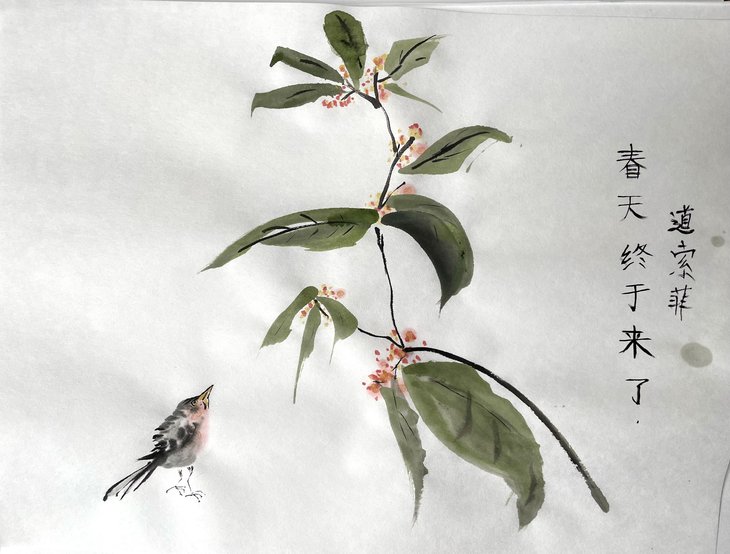 道索菲
春天终于来了.